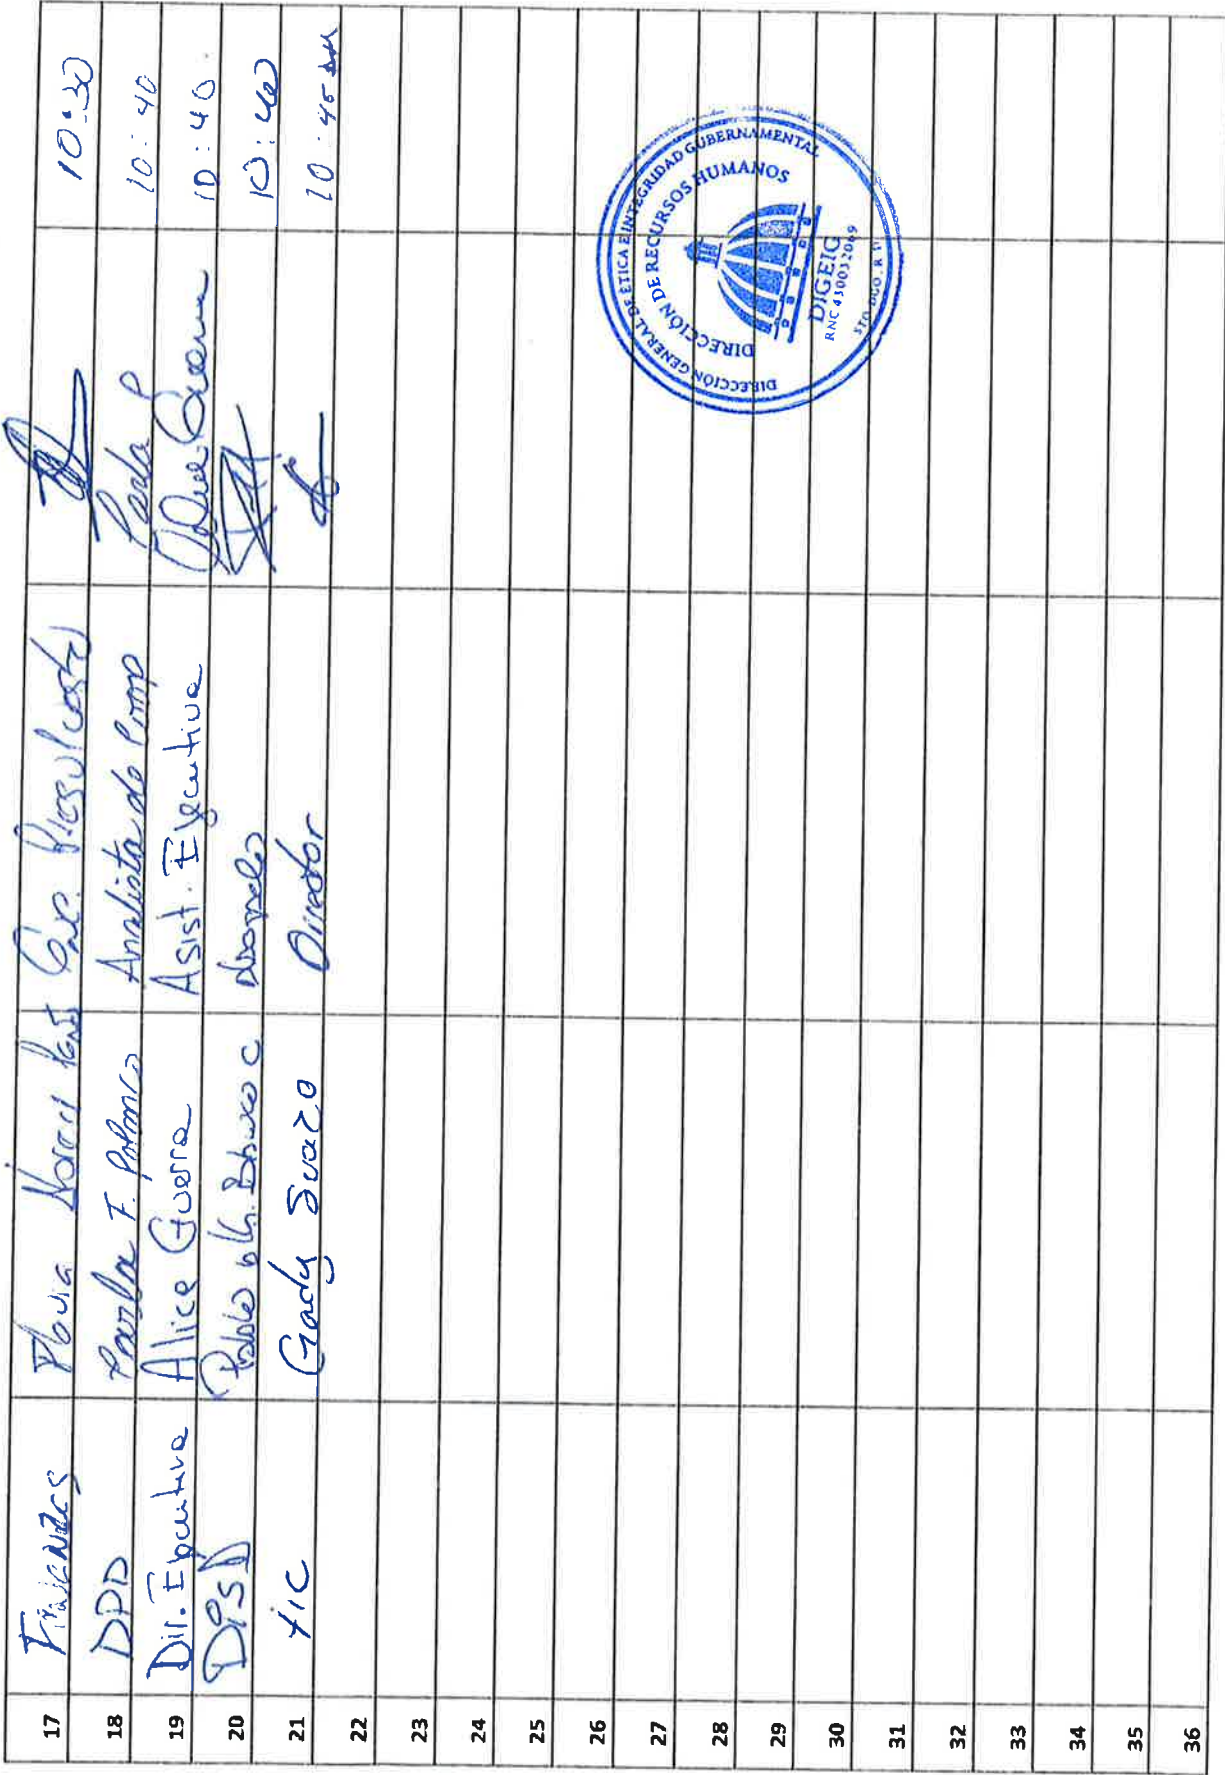 17 Finanzas Enc. Presupuesto 10:30
18 DPD Perla F. Polanco Analista de Perla P 10:40
19 Dir. Ejecutiva Alice Guerra Asist. Ejecutiva Alice Guerra 10:40
20 Pablo 10:40
21 tic Grady Suazo Director 10:45 AM
22
23
24
25
26
27
28
29
30
31
32
33
34
35
36
DIRECCIÓN GENERAL DE ÉTICA E INTEGRIDAD GUBERNAMENTAL
DIRECCIÓN DE RECURSOS HUMANOS
DIGEIG
RNC 430032069
STO. DGO. R.D.